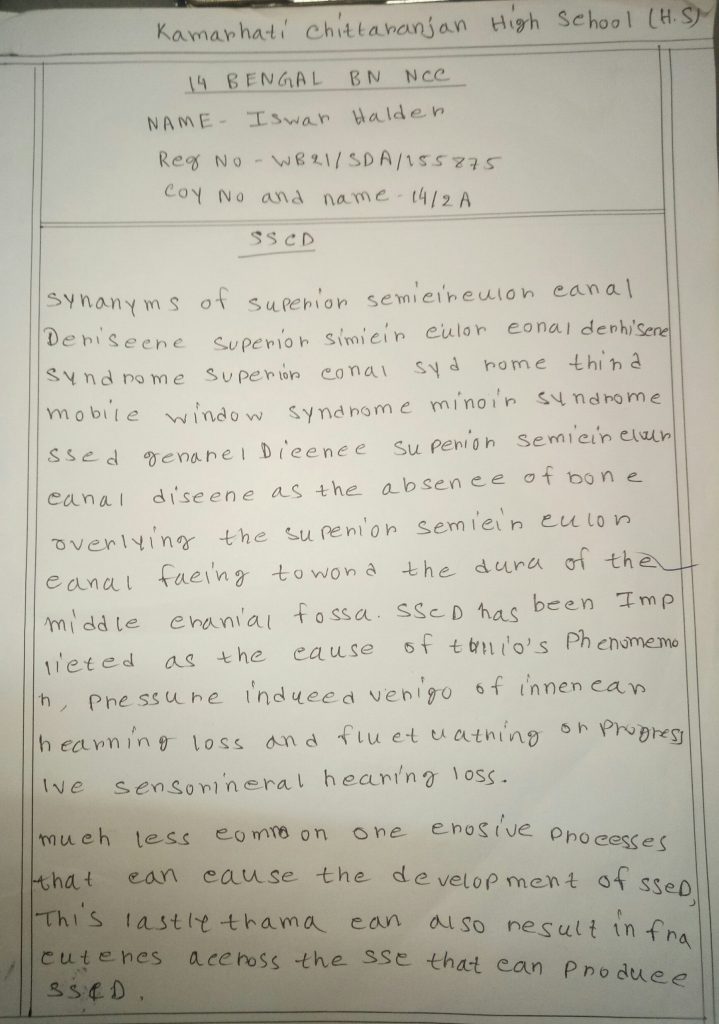 Kamarhati Chittaranjan High School (H.S)
14 BENGAL BN NCC
NAME - Iswar Halder
Reg No - WB21/SDA/155875
Coy No and name - 14/2A
SSCD
synanyms of superior semicireulor canal
Deniseene superior simicir culor conal denhisene
syndrome superior conal syd rome third
mobile window syndrome minoir syndrome
ssed genarel Dieenee superior semicir clur
canal diseene as the absence of bone
overlying the superior semicir culor
canal facing toword the dura of the
middle cranial fossa. SSCD has been Imp
lieted as the cause of tullio's Phenomemo
n, pressure induced verigo of innen ear
hearning loss and fluctuathing or progress
Ive sensorineral hearing loss.
much less common one erosive processes
that can cause the development of SSCD,
This lastly thama can also result in fra
cuteres accross the ssc that can produce
SSCD.